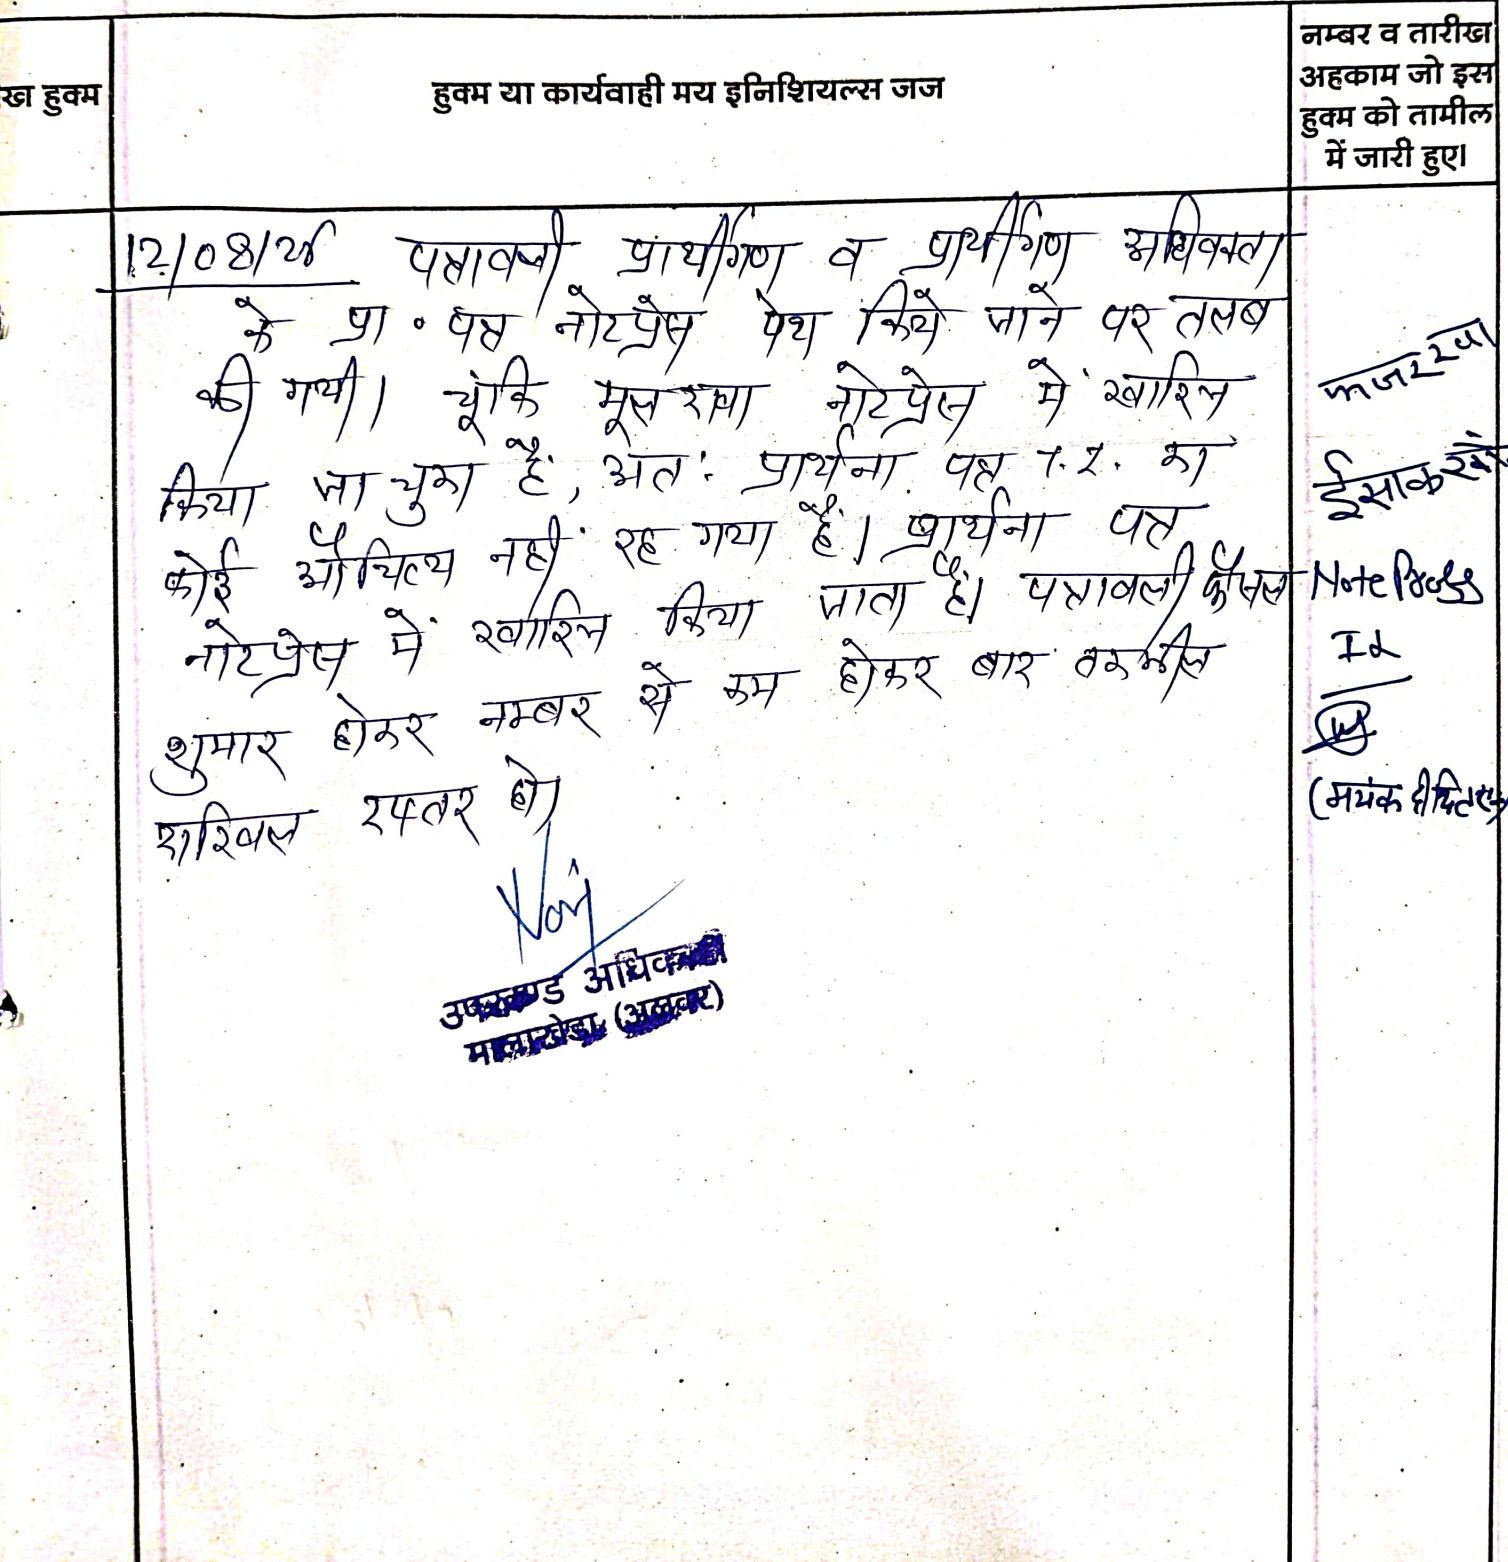 ख हुक्म
हुक्म या कार्यवाही मय इनिशियल्स जज
नम्बर व तारीख
अहकाम जो इस
हुक्म को तामील
में जारी हुए।
12/08/24 पत्रावली प्रार्थीगण व प्रार्थीगण अधिवक्ता
के प्रा. पत्र नोटप्रेस पेश किये जाने पर तलब
की गयी। चूंकि मूल दावा नोटप्रेस में खारिज
किया जा चुका है, अतः प्रार्थना पत्र T.I. का
कोई औचित्य नहीं रह गया है। प्रार्थना पत्र
नोटप्रेस में खारिज किया जाता है। पत्रावली फैसल
शुमार होकर नम्बर से कम होकर बाद तकमील
दाखिल दफ्तर हो।
उपखण्ड अधिकारी
मालाखेडा (अलवर)
ईसाक खां
Note Press
Id
(मयंक दीक्षित